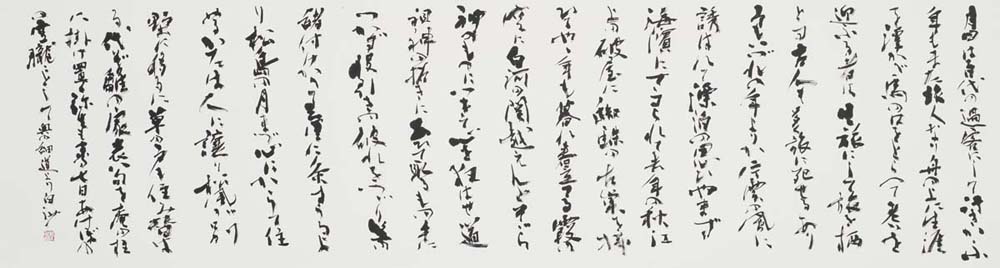 月日は百代の過客にして行きかふ
年もまた旅人なり舟の上に生涯
を浮かべ馬の口をとらへて老いを
迎ふる者は日々旅にして旅を栖
とす古人も多く旅に死せるあり
予もいづれの年よりか片雲の風に
誘はれて漂泊の思ひやまず
海濱にさすらへて去年の秋江
上の破屋に蜘蛛の古巣を掃
ひてやや年も暮に春立てる霞の
空に白河の関越えんとそぞろ
神のものにつきて心を狂はせ道
祖神の招きにあひて取るもの手に
つかず股引の破れをつづり笠の
緒付けかへて三里に灸すうるより
松島の月まづ心にかかりて住
めるかたは人に譲り杉風が別
墅に移るに草の戸も住み替は
る代ぞ雛の家表八句を庵の柱
に掛け置く弥生も末の七日あけぼのの
空朧々として 奥の細道より